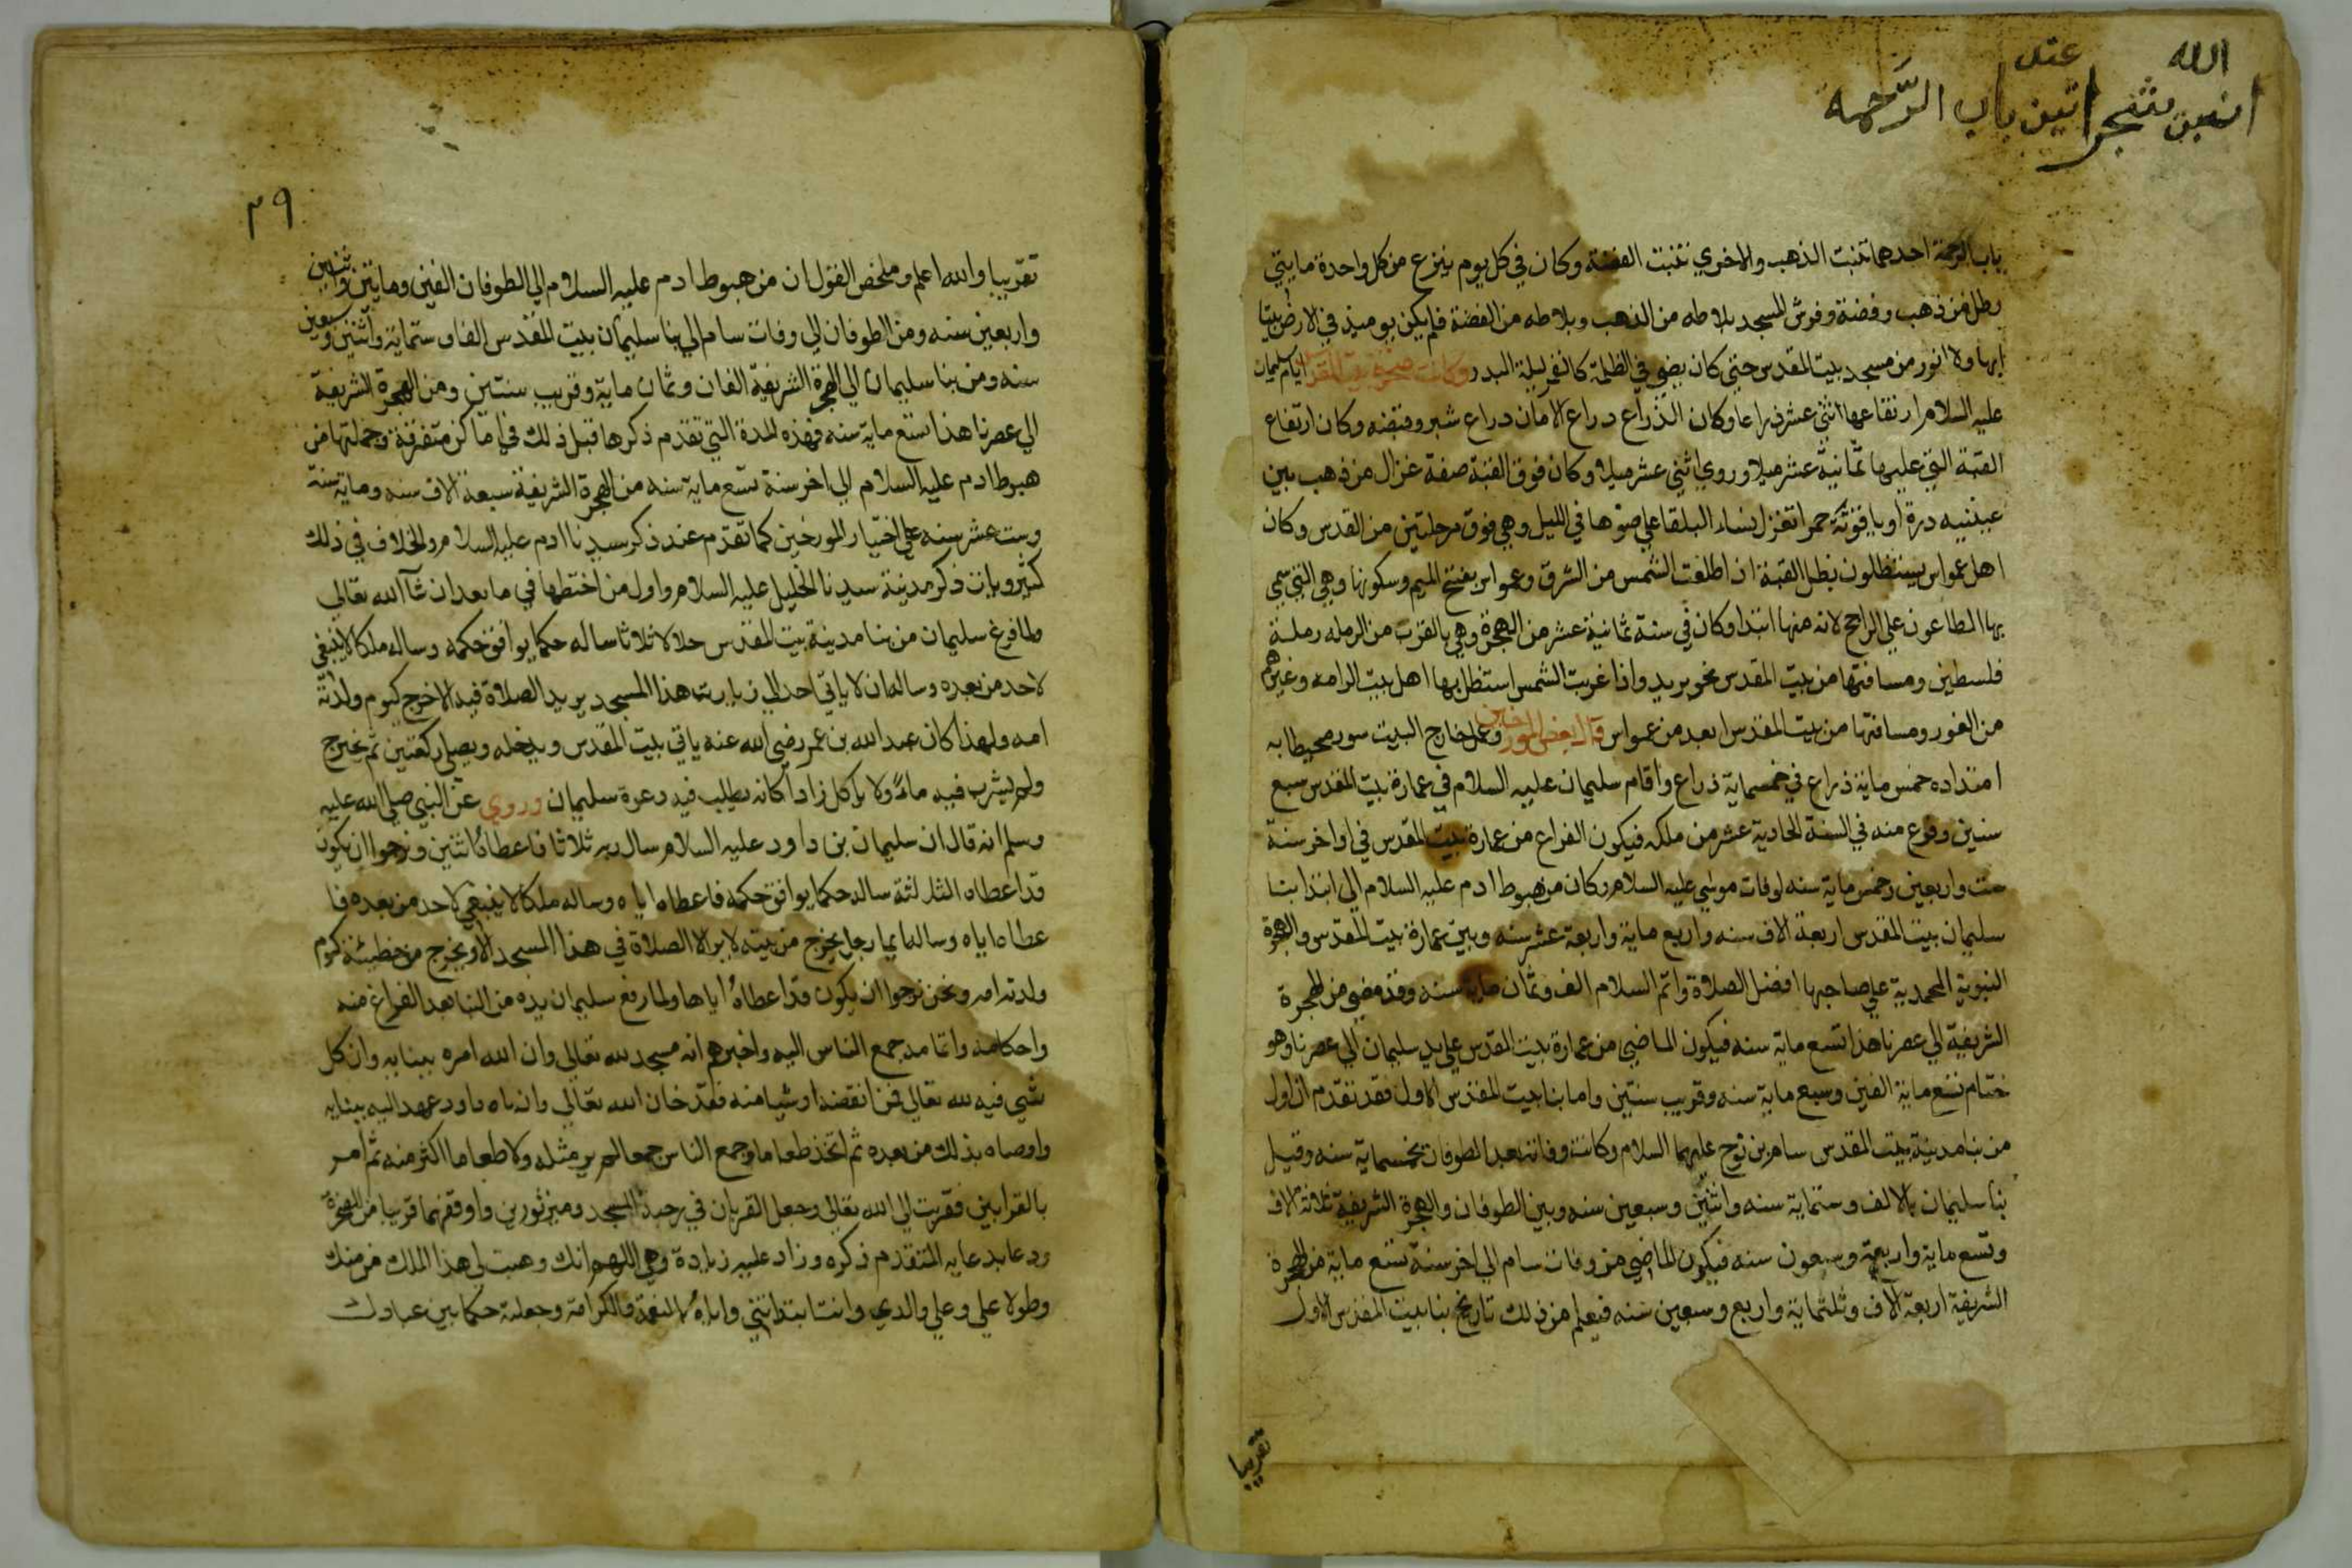 الله
عند
باب الرحمة
باب الرحمة احدهما تنبت الذهب والاخري تنبت الفضة وكان في كل يوم ينزع من كل واحدة مايتي
رطل من ذهب وفضة وفرش المسجد بلاطه من الذهب وبلاطه من الفضة فلم يكن يوميذ في الارض بيتا
ابها ولا انور من مسجد بيت المقدس حتي كان يضي في الظلمة كالقمر ليلة البدر وكانت صخرة بيت المقدس ايام سليمان
عليه السلام ارتفاعها اثني عشر ذراعا وكان الذراع دراع الامان دراع شبر وقبضه وكان ارتفاع
القبة التي عليها ثمانية عشر ميلا وروي اثني عشر ميلا وكان فوق القبة صفة غزال من ذهب بين
عينيه درة او ياقوتة حمرا تغزل نساء البلقا علي ضوها في الليل وهي فوق مرحلتين من القدس وكان
اهل عمواس يستظلون بظل القبة اذ اطلعت الشمس من الشرق وعمواس بفتح الميم وسكونها وهي التي سمي
بها الطاعون علي الراجح لانه منها ابتدا وكان في سنة ثمانية عشر من الهجرة وهي بالقرب من الرمله رملة
فلسطين ومسافتها من بيت المقدس نحو بريد واذا غربت الشمس استظل بها اهل بيت الرامه وغيرهم
من الغور ومسافتها من بيت المقدس ابعد من عمواس قال بعض المورخين وعمل خارج البيت سور محيطا به
امتداده خمس ماية ذراع في خمسماية ذراع واقام سليمان عليه السلام في عمارة بيت المقدس سبع
سنين وفرغ منه في السنة الحادية عشر من ملكه فيكون الفراغ من عمارة بيت المقدس في اواخر سنة
ست واربعين وخمس ماية سنه لوفات موسي عليه السلام وكان من هبوط ادم عليه السلام الي ابتدا بنا
سليمان بيت المقدس اربعة الاف سنه واربع ماية واربعة عشر سنه وبين عمارة بيت المقدس والهجرة
النبوية المحمدية علي صاحبها افضل الصلاة واتم السلام الف وثمان ماية سنه وقد مضي من الهجرة
الشريفة الي عصرنا هذا تسع ماية سنه فيكون الماضي من عمارة بيت المقدس علي يد سليمان الي عصرنا وهو
ختام تسع ماية الفين وسبع ماية سنه وقريب سنتين واما بنا بيت المقدس الاول فقد تقدم ان اول
من بنا مدينة بيت المقدس سام بن نوح عليهما السلام وكانت وفاته بعد الطوفان بخمسماية سنه وقبل
بنا سليمان بالالف وستماية سنه واثنين وسبعين سنه وبين الطوفان والهجرة الشريفة ثلاثة الاف
وتسع ماية واربعة وسبعون سنه فيكون الماضي من وفات سام الي اخر سنة تسع ماية من الهجرة
الشريفة اربعة الاف وثلثماية واربع وسبعين سنه فيعلم من ذلك تاريخ بنا بيت المقدس الاول
تقريبا
٢٩
تقريبا والله اعلم وملخص القول ان من هبوط ادم عليه السلام الي الطوفان الفين ومايتين واثنين
واربعين سنه ومن الطوفان الي وفات سام الي بنا سليمان بيت المقدس الفا وستماية واثنين وسبعين
سنه ومن بنا سليمان الي الهجرة الشريفة الفان وثمان ماية وقريب سنتين ومن الهجرة الشريفة
الي عصرنا هذا تسع ماية سنه فهذه المدة التي تقدم ذكرها قبل ذلك في اماكن متفرقة وجملتها من
هبوط ادم عليه السلام الي اخر سنة تسع ماية سنه من الهجرة الشريفة سبعة الاف سنه وماية سنة
وست عشر سنه علي اختيار المورخين كما تقدم عند ذكر سيدنا ادم عليه السلام والخلاف في ذلك
كثير وياتي ذكر مدينة سيدنا الخليل عليه السلام واول من اختطها في ما بعد ان شآ الله تعالي
ولما فرغ سليمان من بنا مدينة بيت المقدس ثلاثا ساله حكما يوافق حكمه وساله ملكا لا ينبغي
لاحد من بعده وساله ان لا ياتي احد الي زيارت هذا المسجد يريد الصلاة فيه الا خرج كيوم ولدته
امه ولهذا كان عبد الله بن عمر رضي الله عنه ياتي بيت المقدس ويدخله ويصلي ركعتين ثم يخرج
ولم يشرب فيه ماءً ولا ياكل زادا كانه يطلب فيه دعوة سليمان وروي عن النبي صلي الله عليه
وسلم انه قال ان سليمان بن داود عليه السلام سال ربه ثلاثا فاعطاه اثنين ونرجوا ان يكون
قد اعطاه الثالثة ساله حكما يوافق حكمه فاعطاه اياه وساله ملكا لا ينبغي لاحد من بعده فا
عطاه اياه وساله ايما رجل يخرج من بيته لا يريد الا الصلاة في هذا المسجد الا ويخرج من خطيئته كيوم
ولدته امه ونحن نرجوا ان يكون قد اعطاه اياها ولما رفع سليمان يده من البنا بعد الفراغ منه
واحكامه واتمامه جمع الناس اليه واخبرهم انه مسجد لله تعالي وان الله امره ببنايه وان كل
شي فيه لله تعالي فمن انتقصه او شيا منه فقد خان الله تعالي وان داود عهد اليه ببنايه
واوصاه بذلك من بعده ثم اتخذ طعاما وجمع الناس جمعا لم ير مثله ولا طعاما اكثر منه ثم امر
بالقرابين فقربت الي الله تعالي وجعل القربان في رحبة المسجد وميز ثورين واوقفهما قريبا من الصخرة
ودعا بدعايه المتقدم ذكره وزاد عليه زيادة وهي اللهم انك وهبت لي هذا الملك من منك
وطولا علي وعلي والدي وانت ابتداتني واياه بالنعمة والكرامة وجعلته حكما بين عبادك